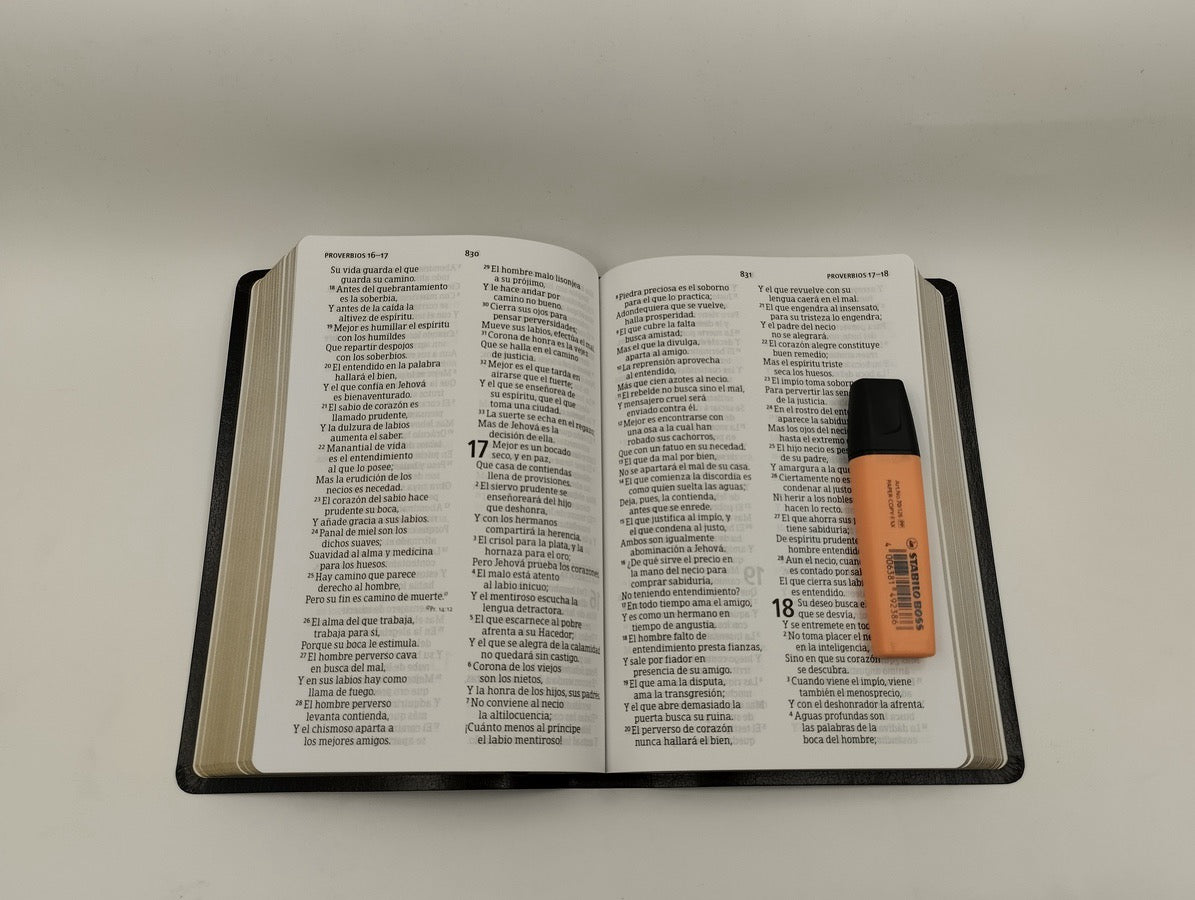 PROVERBIOS 16—17
830
Su vida guarda el que
guarda su camino.
18 Antes del quebrantamiento
es la soberbia,
Y antes de la caída la
altivez de espíritu.
19 Mejor es humillar el espíritu
con los humildes
Que repartir despojos
con los soberbios.
20 El entendido en la palabra
hallará el bien,
Y el que confía en Jehová
es bienaventurado.
21 El sabio de corazón es
llamado prudente,
Y la dulzura de labios
aumenta el saber.
22 Manantial de vida
es el entendimiento
al que lo posee;
Mas la erudición de los
necios es necedad.
23 El corazón del sabio hace
prudente su boca,
Y añade gracia a sus labios.
24 Panal de miel son los
dichos suaves;
Suavidad al alma y medicina
para los huesos.
25 Hay camino que parece
derecho al hombre,
Pero su fin es camino de muerte.
Pr. 14:12
26 El alma del que trabaja,
trabaja para sí,
Porque su boca le estimula.
27 El hombre perverso cava
en busca del mal,
Y en sus labios hay como
llama de fuego.
28 El hombre perverso
levanta contienda,
Y el chismoso aparta a
los mejores amigos.
29 El hombre malo lisonjea
a su prójimo,
Y le hace andar por
camino no bueno.
30 Cierra sus ojos para
pensar perversidades;
Mueve sus labios, efectúa el mal.
31 Corona de honra es la vejez
Que se halla en el camino
de justicia.
32 Mejor es el que tarda en
airarse que el fuerte;
Y el que se enseñorea de
su espíritu, que el que
toma una ciudad.
33 La suerte se echa en el regazo;
Mas de Jehová es la
decisión de ella.
17 Mejor es un bocado
seco, y en paz,
Que casa de contiendas
llena de provisiones.
2 El siervo prudente se
enseñoreará del hijo
que deshonra,
Y con los hermanos
compartirá la herencia.
3 El crisol para la plata, y la
hornaza para el oro;
Pero Jehová prueba los corazones.
4 El malo está atento
al labio inicuo;
Y el mentiroso escucha la
lengua detractora.
5 El que escarnece al pobre
afrenta a su Hacedor;
Y el que se alegra de la calamidad
no quedará sin castigo.
6 Corona de los viejos
son los nietos,
Y la honra de los hijos, sus padres.
7 No conviene al necio
la altilocuencia;
¡Cuánto menos al príncipe
el labio mentiroso!
831
PROVERBIOS 17—18
8 Piedra preciosa es el soborno
para el que lo practica;
Adondequiera que se vuelve,
halla prosperidad.
9 El que cubre la falta
busca amistad;
Mas el que la divulga,
aparta al amigo.
10 La reprensión aprovecha
al entendido,
Más que cien azotes al necio.
11 El rebelde no busca sino el mal,
Y mensajero cruel será
enviado contra él.
12 Mejor es encontrarse con
una osa a la cual han
robado sus cachorros,
Que con un fatuo en su necedad.
13 El que da mal por bien,
No se apartará el mal de su casa.
14 El que comienza la discordia es
como quien suelta las aguas;
Deja, pues, la contienda,
antes que se enrede.
15 El que justifica al impío, y
el que condena al justo,
Ambos son igualmente
abominación a Jehová.
16 ¿De qué sirve el precio en
la mano del necio para
comprar sabiduría,
No teniendo entendimiento?
17 En todo tiempo ama el amigo,
Y es como un hermano en
tiempo de angustia.
18 El hombre falto de
entendimiento presta fianzas,
Y sale por fiador en
presencia de su amigo.
19 El que ama la disputa,
ama la transgresión;
Y el que abre demasiado la
puerta busca su ruina.
20 El perverso de corazón
nunca hallará el bien,
Y el que revuelve con su
lengua caerá en el mal.
21 El que engendra al insensato,
para su tristeza lo engendra;
Y el padre del necio
no se alegrará.
22 El corazón alegre constituye
buen remedio;
Mas el espíritu triste
seca los huesos.
23 El impío toma soborn
Para pervertir las sen
de la justicia.
24 En el rostro del ent
aparece la sabidu
Mas los ojos del neci
hasta el extremo
25 El hijo necio es pe
de su padre,
Y amargura a la qu
26 Ciertamente no es
condenar al justo
Ni herir a los nobles
hacen lo recto.
27 El que ahorra sus
tiene sabiduría;
De espíritu prudente
hombre entendid
28 Aun el necio, cuan
es contado por sa
El que cierra sus lab
es entendido.
18 Su deseo busca e
que se desvía,
Y se entremete en to
2 No toma placer el ne
en la inteligencia,
Sino en que su corazón
se descubra.
3 Cuando viene el impío, viene
también el menosprecio,
Y con el deshonrador la afrenta.
4 Aguas profundas son
las palabras de la
boca del hombre;
STABILO BOSS
4 006381 492386